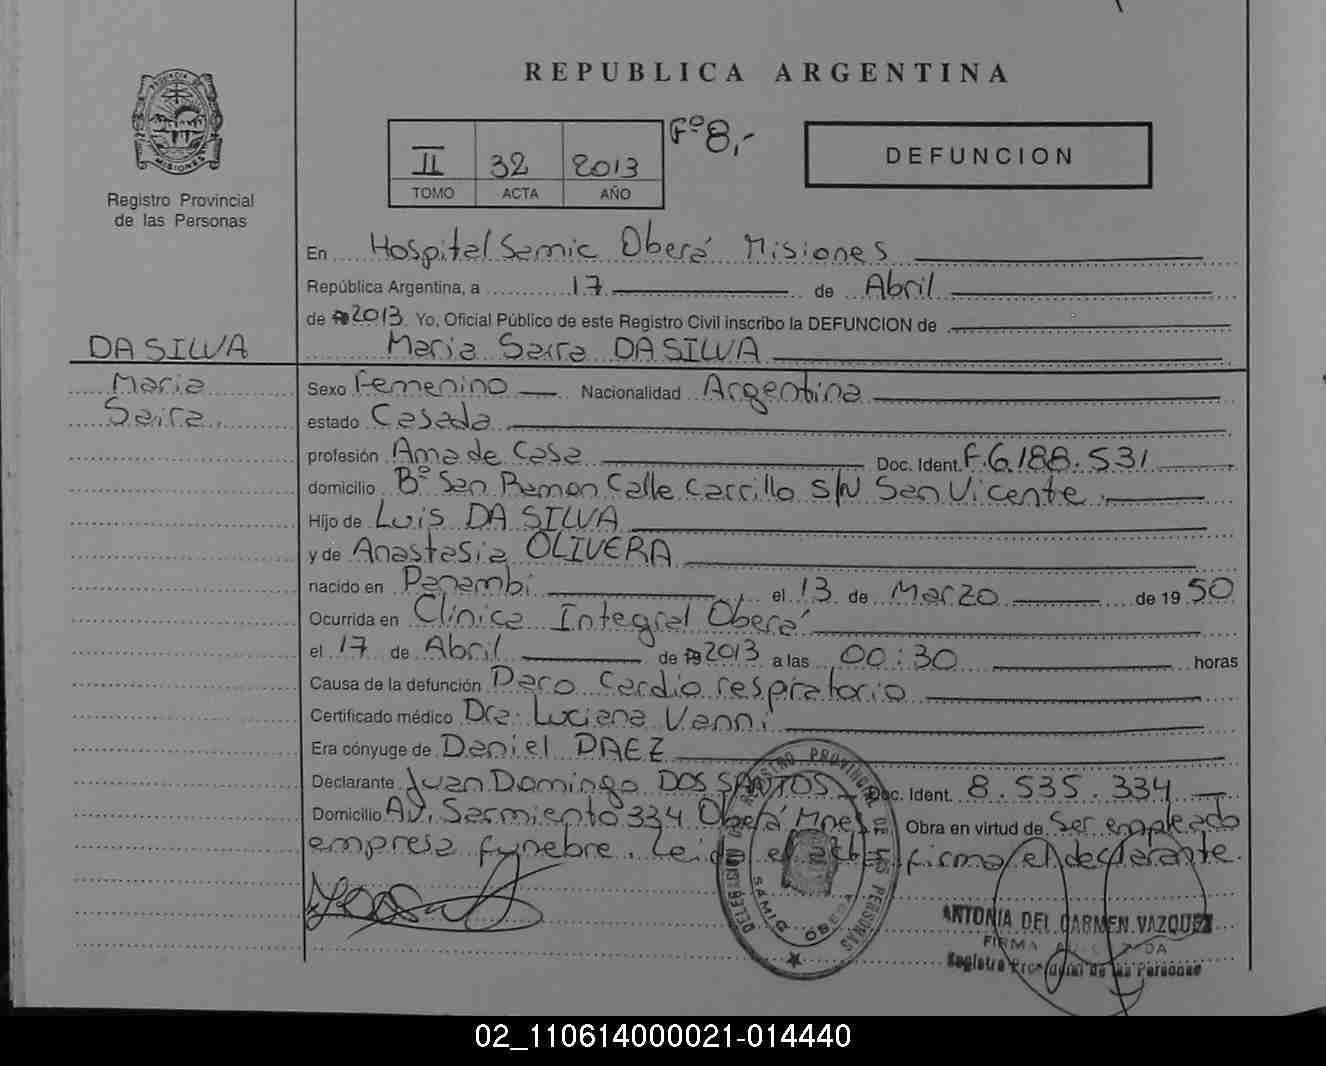 REPUBLICA ARGENTINA
MISIONES
Registro Provincial
de las Personas
II 32 2013 Fº 8,-
TOMO ACTA AÑO
DEFUNCION
En Hospital Samic Oberá Misiones
República Argentina, a 17 de Abril
de 2013 Yo, Oficial Público de este Registro Civil inscribo la DEFUNCION de
DA SILVA
Maria Saira DA SILVA
Maria
Saira
Sexo Femenino Nacionalidad Argentina
estado Casada
profesión Ama de Casa Doc. Ident. F 6.188.531
domicilio Bº San Ramon Calle Carrillo S/N San Vicente.
Hijo de Luis DA SILVA
y de Anastasia OLIVERA
nacido en Panambi el 13 de Marzo de 1950
Ocurrida en Clínica Integral Oberá
el 17 de Abril de 2013 a las 00:30 horas
Causa de la defunción Paro Cardio respiratorio
Certificado médico Dra. Luciana Vanni
Era cónyuge de Daniel PAEZ
Declarante Juan Domingo DOS SANTOS Doc. Ident. 8.535.334
Domicilio Av. Sarmiento 334 Oberá Mnes Obra en virtud de Ser empleado
empresa funebre. Leida el acta firma el declarante.
REGISTRO PROVINCIAL DE LAS PERSONAS
SAMIC OBERA
ANTONIA DEL CARMEN VAZQUEZ
FIRMA
Registro Provincial de las Personas
02_110614000021-014440